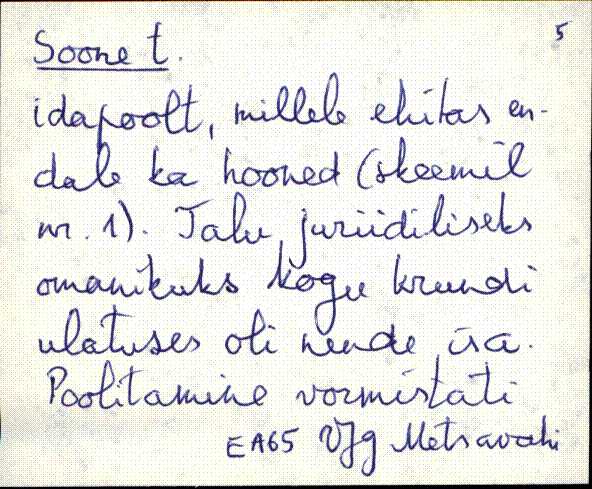 Soone t.
5
idapoolt, millele ehitas en-
dale ka hooned (skeemil
nr. 1). Talu juriidiliseks
omanikuks kogu krundi
ulatuses oli nende isa.
Poolitamine vormistati
EA65 VJg Metsavahi